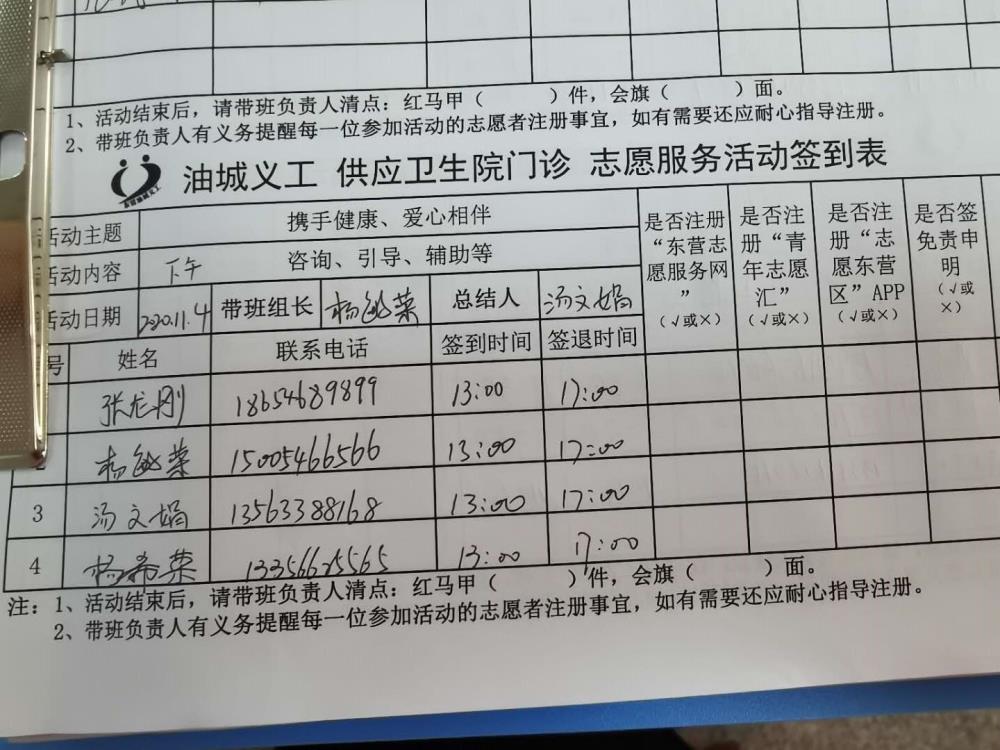 1、活动结束后，请带班负责人清点：红马甲（　　）件，会旗（　　）面。
2、带班负责人有义务提醒每一位参加活动的志愿者注册事宜，如有需要还应耐心指导注册。
油城义工 供应卫生院门诊 志愿服务活动签到表
活动主题 携手健康、爱心相伴 是否注册“东营志愿服务网”（√或×） 是否注册“青年志愿汇”（√或×） 是否注册“志愿东营区”APP（√或×） 是否签免责申明（√或×）
活动内容 下午 咨询、引导、辅助等
活动日期 2020.11.4 带班组长 杨敏荣 总结人 汤文娟
号 姓名 联系电话 签到时间 签退时间
张龙刚 18654689899 13:00 17:00
杨敏荣 15005466566 13:00 17:00
3 汤文娟 13563388168 13:00 17:00
4 杨希荣 13356625565 13:00 17:00
注：1、活动结束后，请带班负责人清点：红马甲（　　）件，会旗（　　）面。
2、带班负责人有义务提醒每一位参加活动的志愿者注册事宜，如有需要还应耐心指导注册。